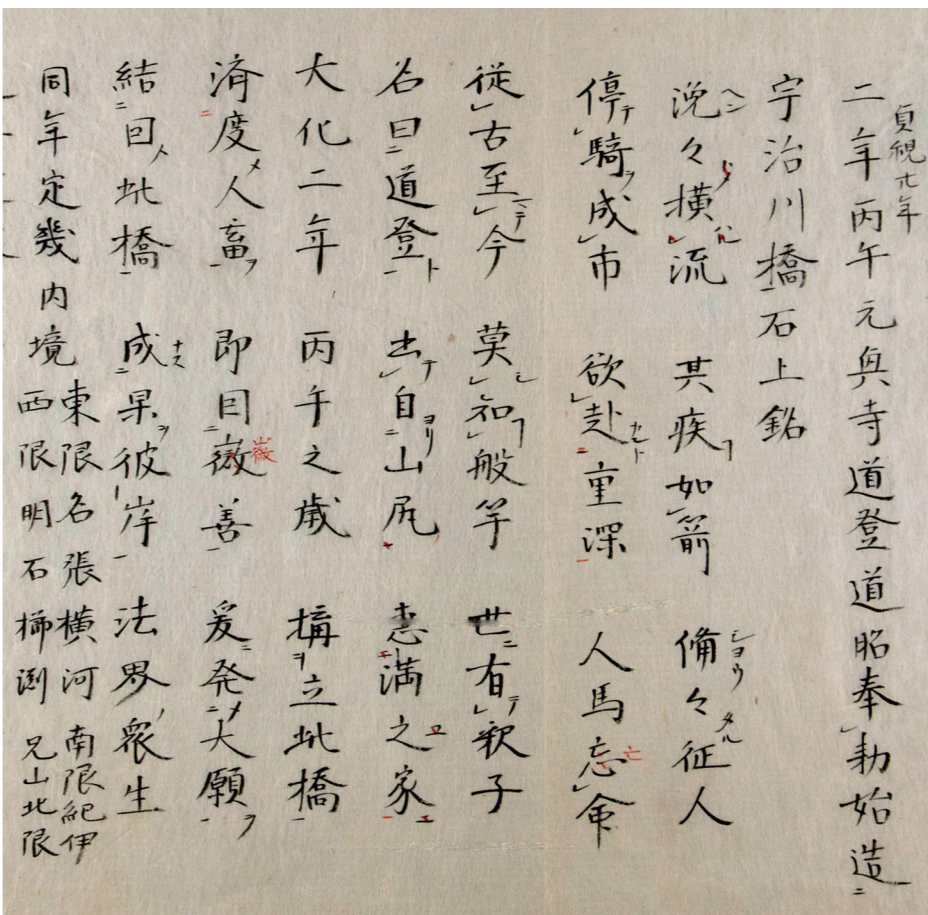 貞観廿年
二年丙午元興寺道登道昭奉勅始造
宇治川橋石上銘
浼々横流 其疾如箭 脩々征人
停騎成市 欲赴重深 人馬忘命
従古至今 莫知般竿 世有釈子
名曰道登 出自山尻 恵満之家
大化二年 丙午之歳 搆立此橋
済度人畜 即因微善 爰発大願
結因此橋 成果彼岸 法界衆生
同年定畿内境 東限名張横河 南限紀伊
西限明石櫛渕 兄山北限